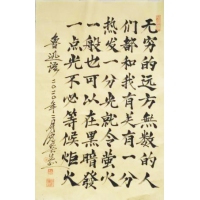 无穷的远方無數的人
们都和我有关有一分
热发一分光就令萤火
一般也可以在黑暗發
一点光不必等候炬火
鲁迅语 二〇二〇年二月